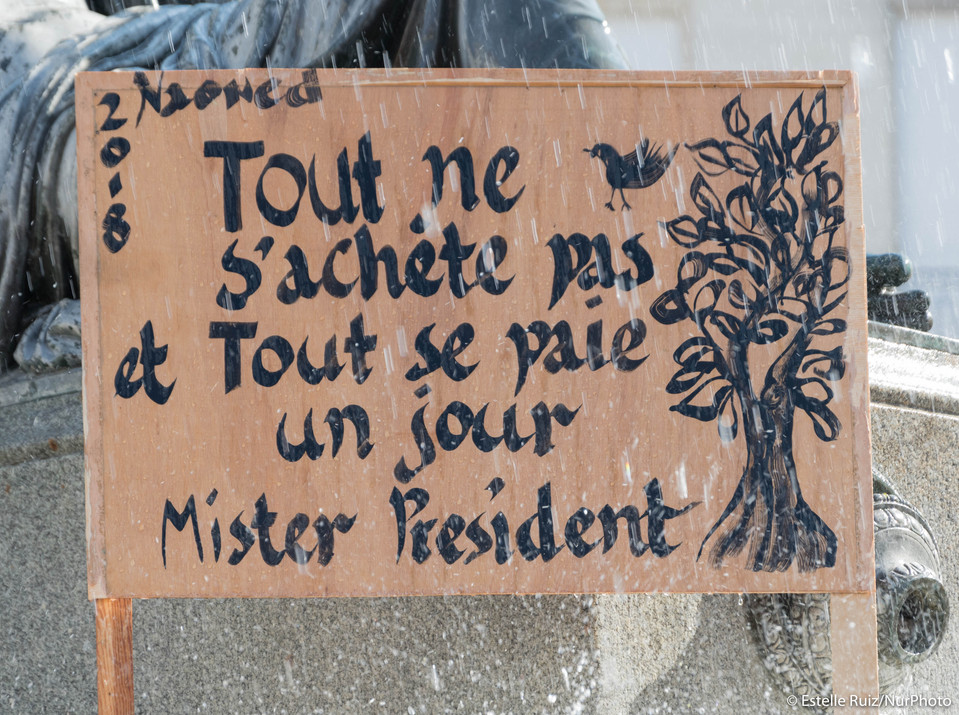 Naoned
2018
Tout ne
s'achète pas
et Tout se paie
un jour
Mister President
© Estelle Ruiz/NurPhoto